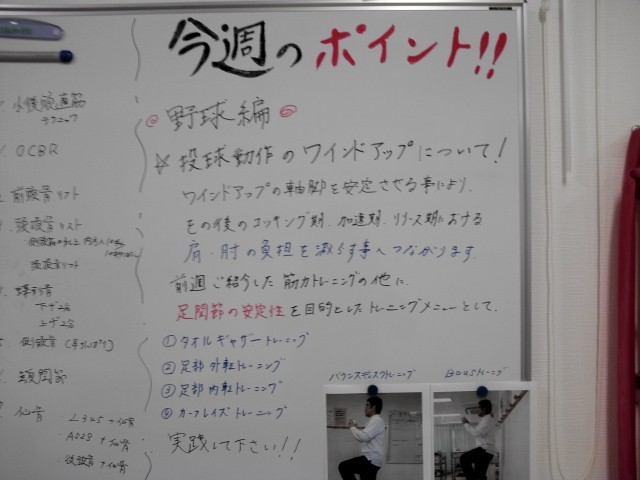 今週のポイント!!
野球編
☆投球動作のワインドアップについて!
ワインドアップの軸脚を安定させる事により、
その後のコッキング期、加速期、リリース期における
肩・肘の負担を減らす事へつながります。
前週ご紹介した筋力トレーニングの他に、
足関節の安定性を目的としたトレーニングメニューとして、
①タオルギャザートレーニング
②足部外転トレーニング
③足部内転トレーニング
④カーフレイズトレーニング
実践して下さい!!
バランスディスクトレーニング
BOSUトレーニング
小後頭直筋
テクニック
OCBR
前頭骨リフト
頭頂骨リスト
蝶形骨
下げる
上げる
側頭骨
顎関節
仙骨